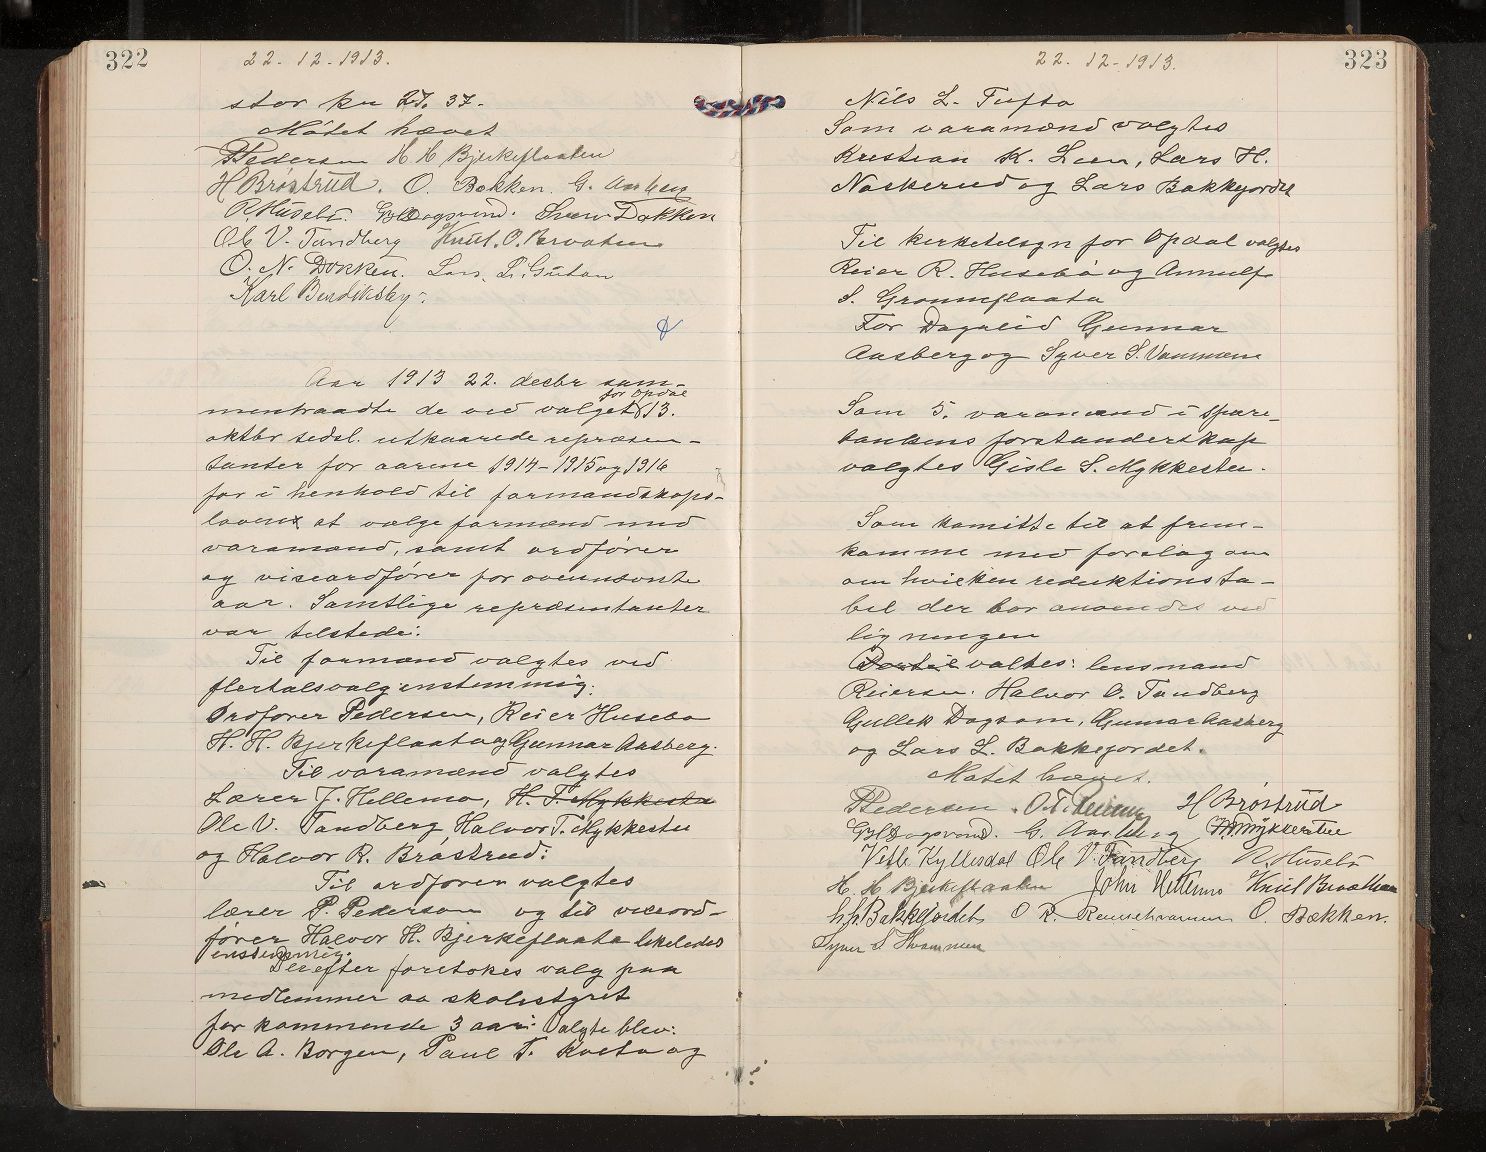 322
22. 12. 1913.
stor kr 27. 37.
Mötet hævet
PPedersen H H Bjerkeflaaten
H Bröstrud. O. Bakken. G. Aasberg
R. Husebö. GHDagsvind. Sver Dokken
Ole V. Tandberg Knut. O. Brvaten
O. N. Dokken. Lars. L. Gutan
Karl Bendiksby.
Aar 1913 22. decbr sam-
for Opdal
mentraadte de ved valget 13.
oktbr sidsl. utkaarede repræsen-
tanter for aarene 1914-1915 og 1916
for i henhold til formandskaps-
loven at vælge formænd med
varamænd, samt ordförer
og viseordförer for ovennævnte
aar. Samtlige repræsentanter
var tilstede:
Til formænd valgtes ved
flertalsvalg enstemmig:
Ordförer Pedersen, Reier Husebö
H. H. Bjerkeflaata og Gunnar Aasberg.
Til varamænd valgtes
Lærer J. Hellemo, H. T. Mykkestu
Ole V. Tandberg Halvor T. Mykkestu
og Halvor R. Bröstrud:
Til ordförer valgtes
lærer P. Pedersen og til viseord-
förer Halvor H. Bjerkeflaata likeledes
enstemmig.
Derefter foretokes valg paa
medlemmer av skolestyret
for kommende 3 aar: Valgte blev:
Ole A. Borgen, Paul T. Kveto og
323
22. 12-1913.
Nils L. Tufto
Som varamænd valgtes
Kristian K. Leen, Lars H.
Naskerud og Lars Bakkejordet
Til kirketilsyn for Opdal valgtes
Reier R. Husebö og Annulf
S. Grönneflaata
For Dagalid Gunnar
Aasberg og Syver S. Vammen
Som 5. varamænd i spare-
bankens forstanderskap
valgtes Gisle S. Mykkestu.
Som komitte til at frem-
komme med forslag om
om hvilken reduktionsta-
bel der bör anvendes ved
ligningen
Dertil valtes: lensmand
Reiersen. Halvor O. Tandberg
Gullek Dagsom, Gunnar Aasberg
og Lars L. Bakkejordet.
Mötet hævet.
PPedersen. O.T. Reiersen H Bröstrud
GHDagsvend. G. Aasberg HTMykkestue
Vetle Kyllesdal Ole V. Tandberg R. Husebö
H. H Bjerkeflaaten John Hellemo Knut Braathen
L. L. Bakkejordet O R. O. Bækken.
Syver S Hvammen